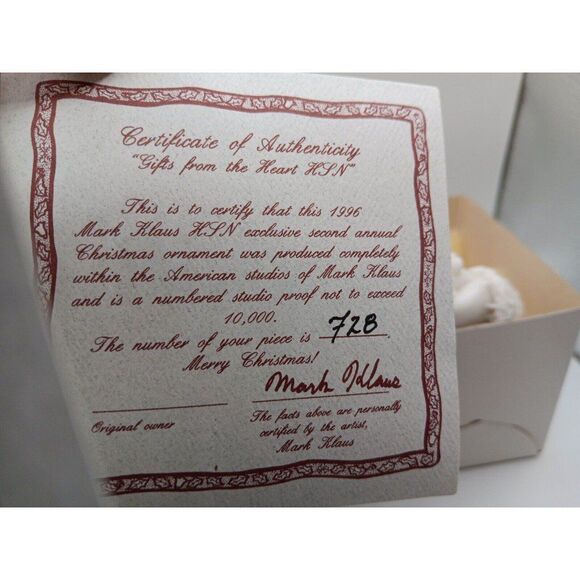 Certificate of Authenticity
"Gifts from the Heart HSN"
This is to certify that this 1996
Mark Klaus HSN exclusive second annual
Christmas ornament was produced completely
within the American studios of Mark Klaus
and is a numbered studio proof not to exceed
10,000.
The number of your piece is 728.
Merry Christmas!
Mark Klaus
Original owner
The facts above are personally
certified by the artist,
Mark Klaus